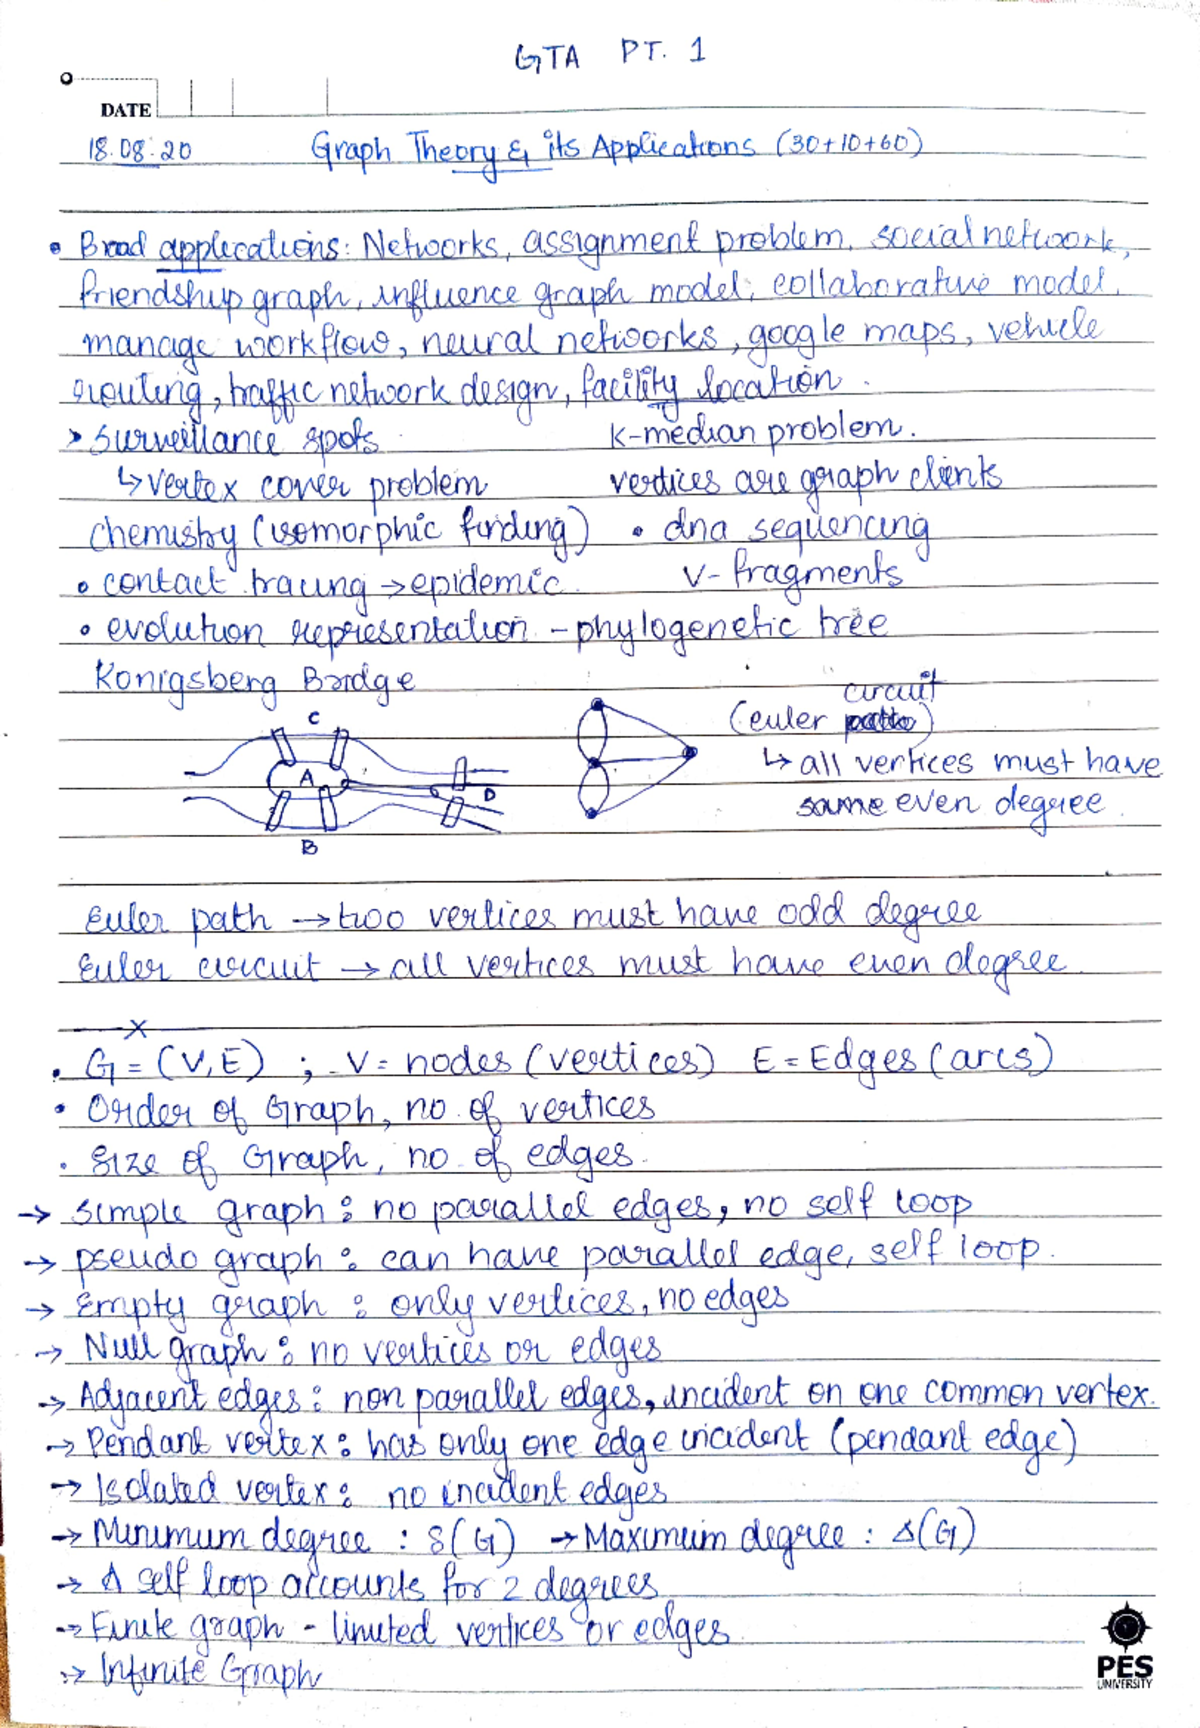 GTA PT. 1
DATE
18.08.20 Graph Theory & its Applications (30+10+60)
• Broad applications: Networks, assignment problem, social network,
friendship graph, influence graph model, collaborative model,
manage workflow, neural networks, google maps, vehicle
routing, traffic network design, facility location.
> surveillance spots k-median problem.
↳ vertex cover problem vertices are graph clients
chemistry (isomorphic finding) • dna sequencing
• contact tracing → epidemic v- fragments
• evolution representation - phylogenetic tree
Konigsberg Bridge
circuit
(euler path)
↳ all vertices must have
same even degree
C
A
D
B
Euler path → two vertices must have odd degree
Euler circuit → all vertices must have even degree
x
• G = (V, E) ; V = nodes (vertices) E = Edges (arcs)
• Order of Graph, no. of vertices
• Size of Graph, no. of edges.
→ simple graph : no parallel edges, no self loop
→ pseudo graph : can have parallel edge, self loop.
→ Empty graph : only vertices, no edges
→ Null graph : no vertices or edges
→ Adjacent edges : non parallel edges, incident on one common vertex.
→ Pendant vertex : has only one edge incident (pendant edge)
→ Isolated vertex : no incident edges
→ Minimum degree : δ(G) → Maximum degree : Δ(G)
→ A self loop accounts for 2 degrees
→ Finite graph - limited vertices or edges
→ Infinite Graph
PES
UNIVERSITY